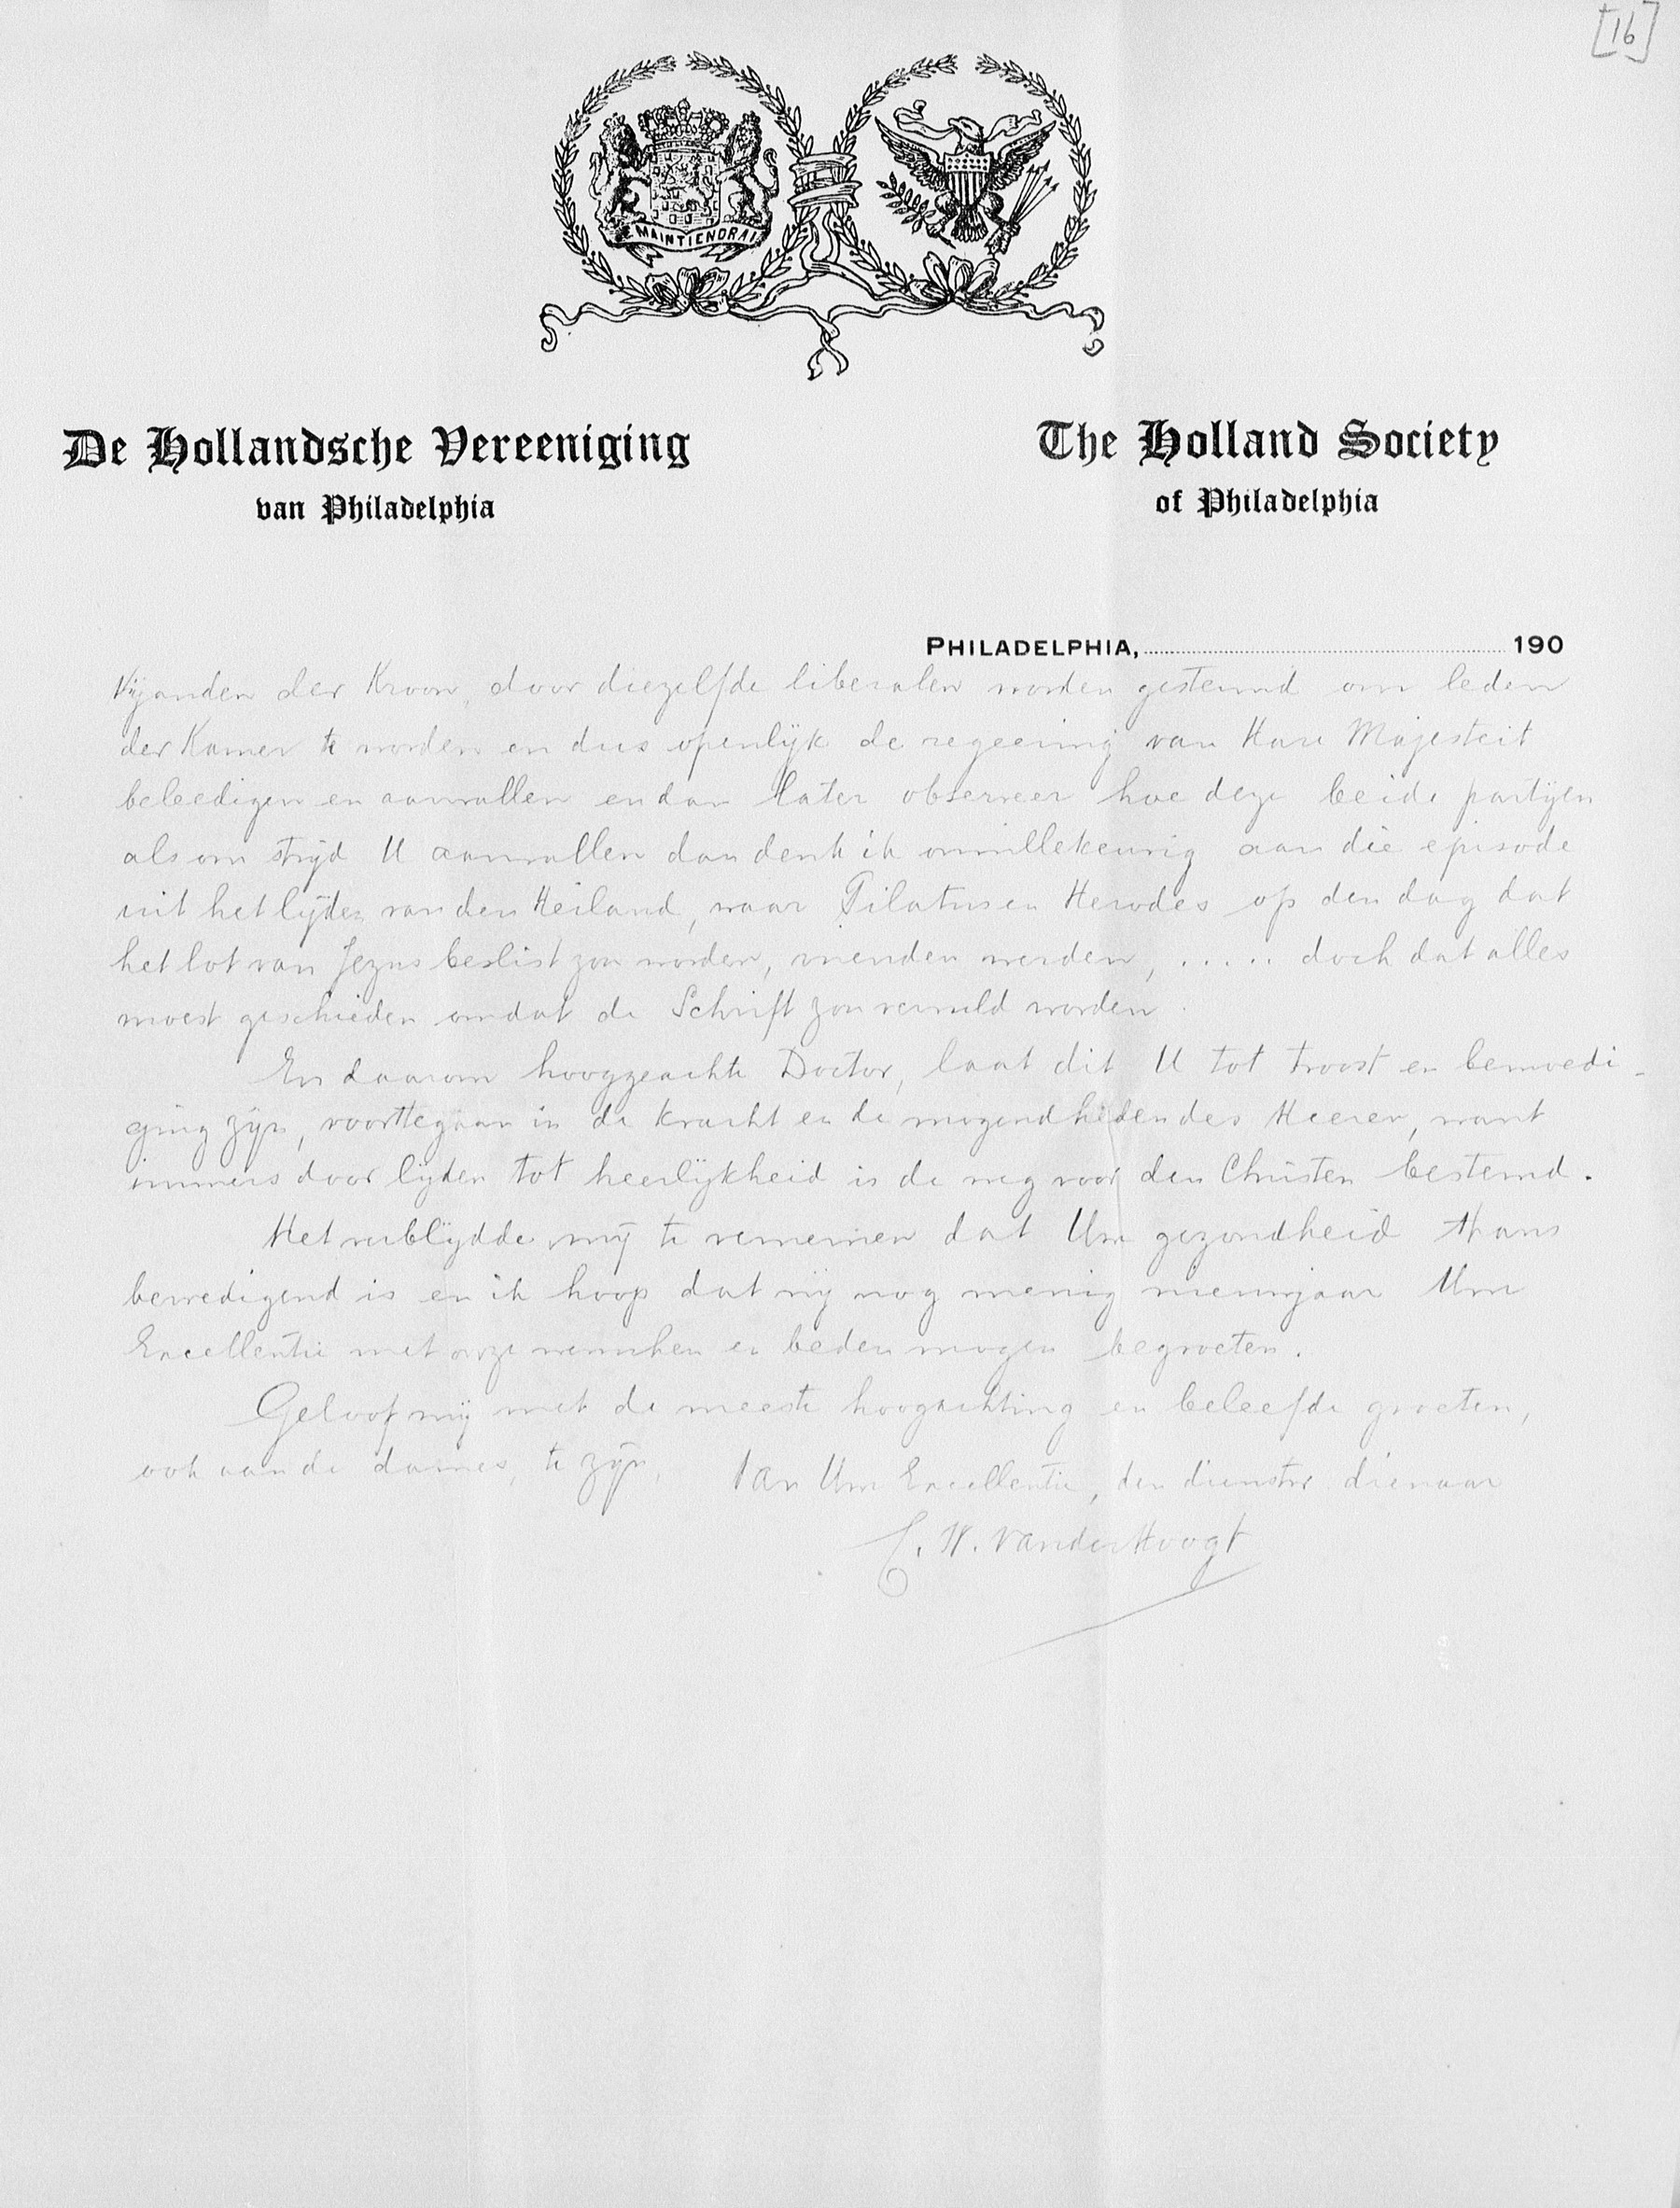 [16]
JE MAINTIENDRAI
De Hollandsche Vereeniging
van Philadelphia
The Holland Society
of Philadelphia
PHILADELPHIA, 190
Vijanden der Kroon, door diezelfde liberalen worden gestemd om leden
der Kamer te worden en dus openlijk de regeering van Hare Majesteit
beleedigen en aanvallen en dan later observeer hoe deze beide partijen
als om strijd U aanvallen dan denk ik onwillekeurig aan die episode
uit het lijden van den Heiland, waar Pilatus en Herodes op den dag dat
het lot van Jezus beslist zou worden, vrienden werden, ..... doch dat alles
moest geschieden omdat de Schrift zou vervuld worden.
En daarom hooggeachte Doctor, laat dit U tot troost en bemoedi-
ging zijn, voorttegaan in de kracht en de mogendheden des Heeren, want
immers door lijden tot heerlijkheid is de weg voor den Christen bestemd.
Het verblijdde mij te vernemen dat Uw gezondheid thans
bevredigend is en ik hoop dat wij nog menig nieuwjaar Uw
Excellentie met onze wenschen en beden mogen begroeten.
Geloof mij met de meeste hoogachting en beleefde groeten,
ook aan de dames, te zijn,
Van Uw Excellentie, den dienstw dienaar
C. W. VanderHoogt